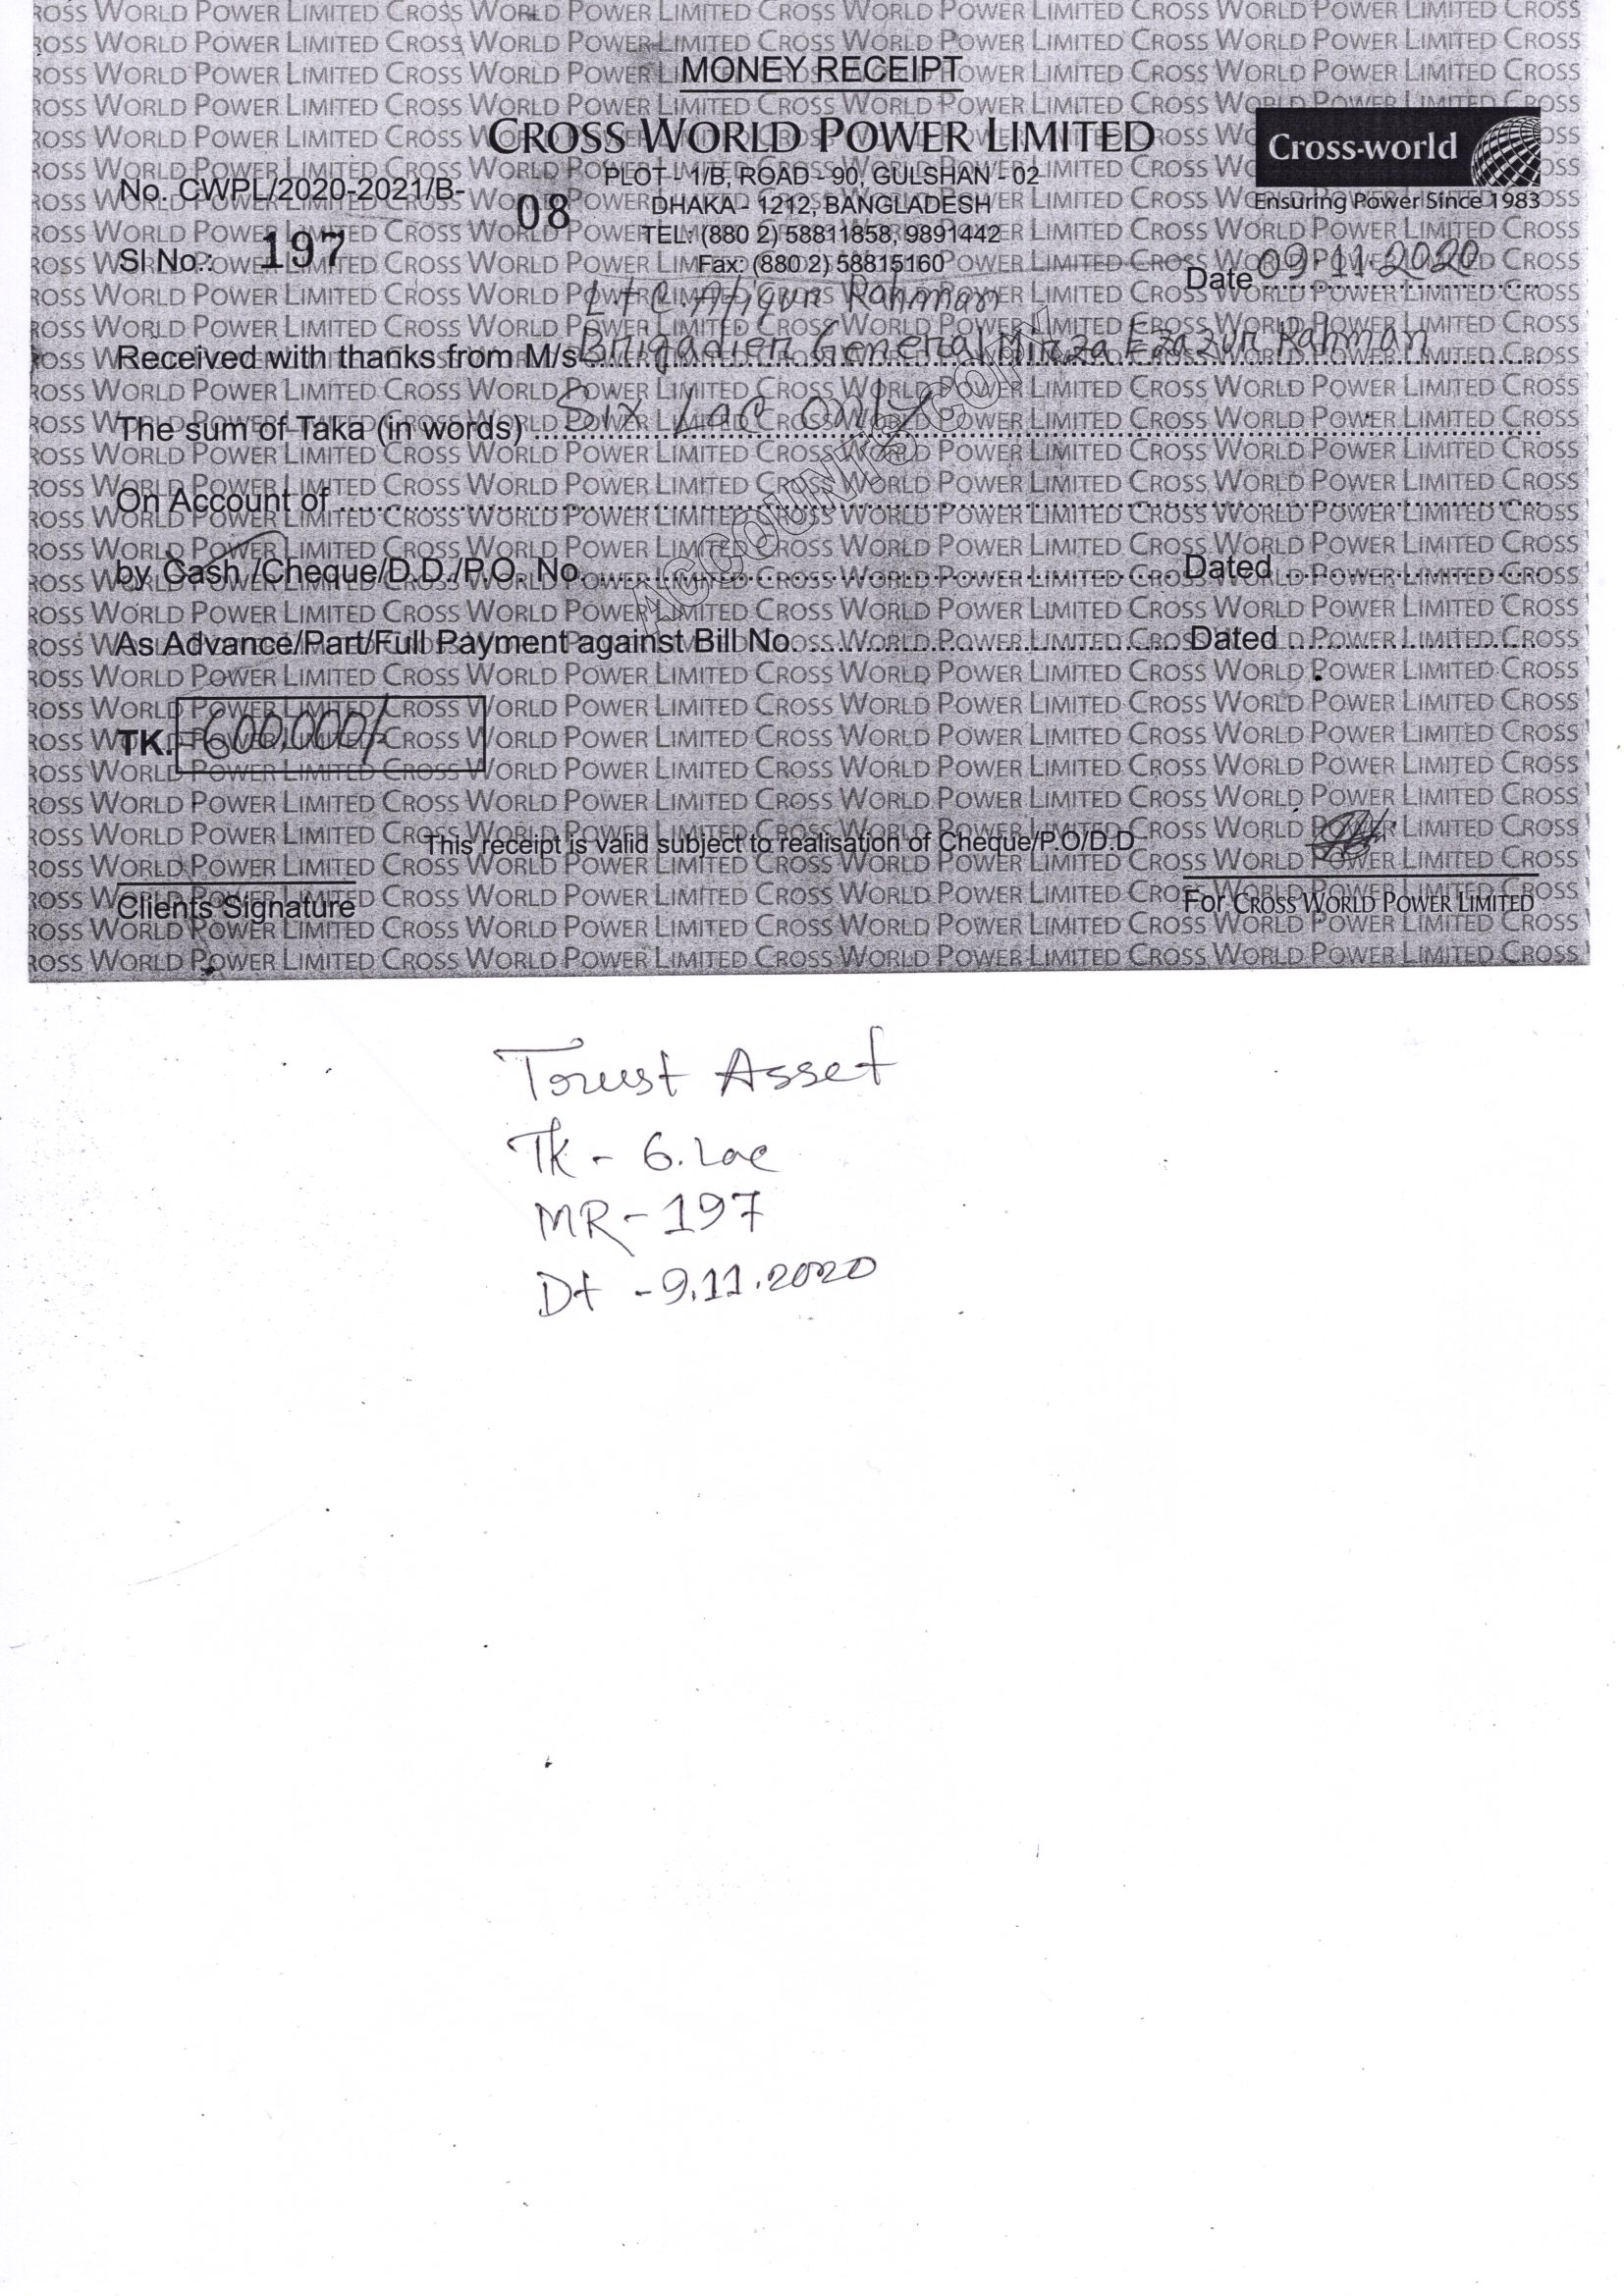 MONEY RECEIPT
CROSS WORLD POWER LIMITED
Cross-world
Ensuring Power Since 1983
PLOT - 1/B, ROAD - 90, GULSHAN - 02
DHAKA - 1212, BANGLADESH
TEL: (880 2) 58811858, 9891442
Fax: (880 2) 58815160
No. CWPL/2020-2021/B- 08
Sl No.: 197
Date 09.11.2020
Rahman
Received with thanks from M/s Brigadier General Mirza Ezazur Rahman
The sum of Taka (in words) Six Lac only
On Account of
by Cash /Cheque/D.D./P.O. No. Dated
As Advance/Part/Full Payment against Bill No. Dated
ACCOUNTS COPY
TK. =600,000/-
This receipt is valid subject to realisation of Cheque/P.O/D.D
Clients Signature
For CROSS WORLD POWER LIMITED
Trust Asset
Tk - 6.Lac
MR - 197
Dt - 9.11.2020